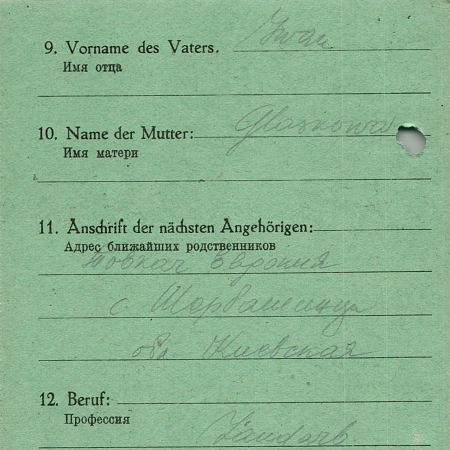 9. Vorname des Vaters. Iwan
Имя отца
10. Name der Mutter: Glaskowa
Имя матери
11. Anschrift der nächsten Angehörigen:
Адрес ближайших родственников
Товкач
с.
обл. Киевская
12. Beruf:
Профессия
Landarb.